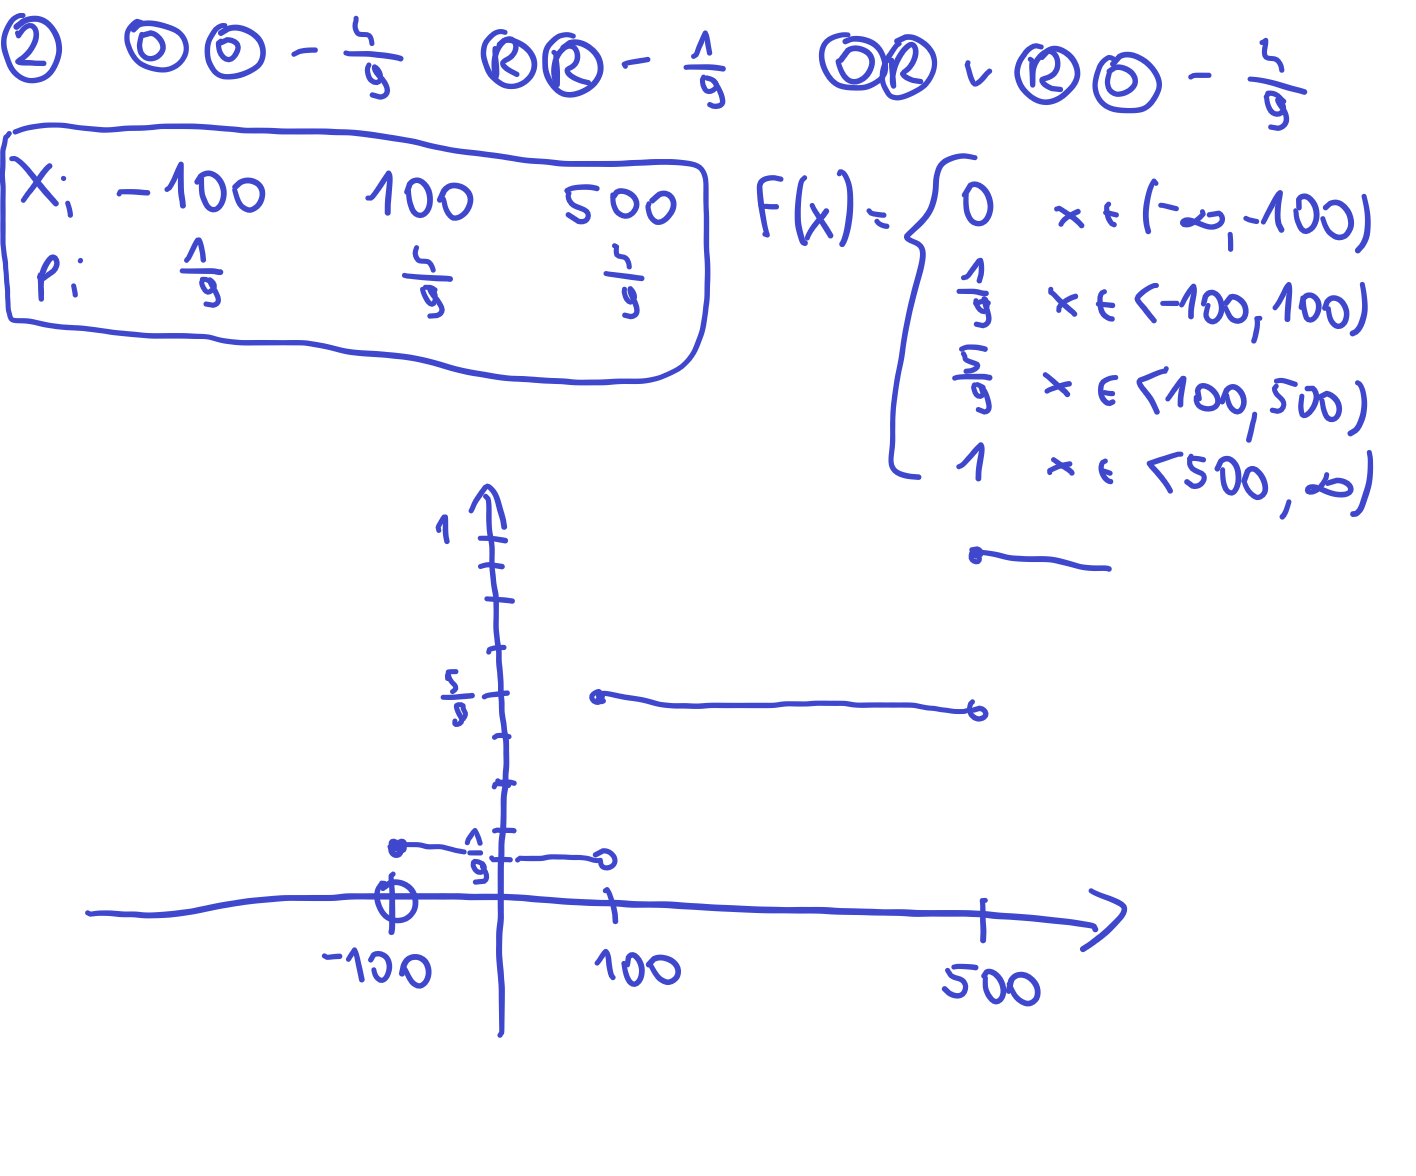 ② Ⓞ Ⓞ - 4/9 Ⓡ Ⓡ - 1/9 Ⓞ Ⓡ v Ⓡ Ⓞ - 4/9
Xi -100 100 500
Pi 1/9 4/9 4/9
F(x) = { 0 x ∈ (-∞, -100)
1/9 x ∈ <-100, 100)
5/9 x ∈ <100, 500)
1 x ∈ <500, ∞)
1
5/9
1/9
-100 100 500